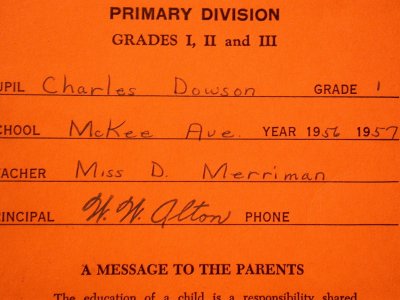 PRIMARY DIVISION
GRADES I, II and III
UPIL Charles Dowson GRADE 1
CHOOL McKee Ave. YEAR 1956 1957
EACHER Miss D. Merriman
RINCIPAL W. W. Alton PHONE
A MESSAGE TO THE PARENTS
The education of a child is a responsibility shared